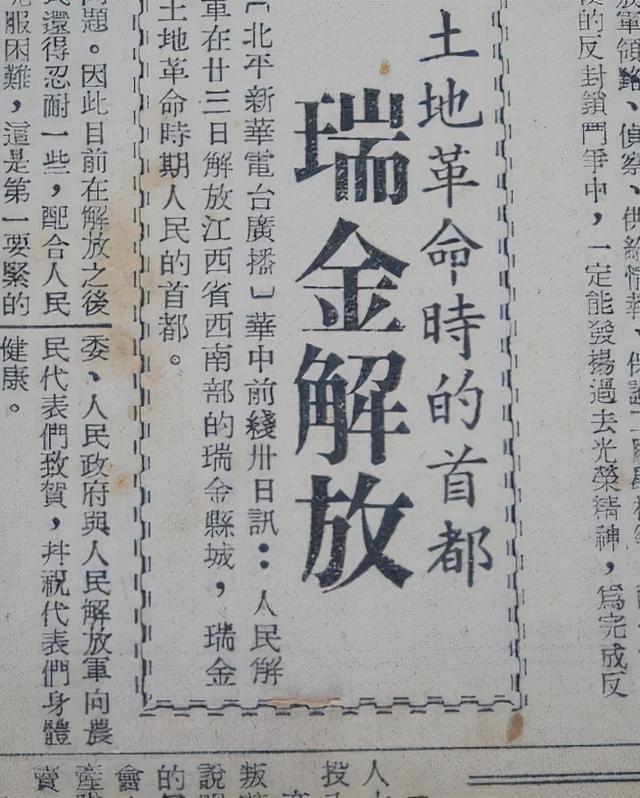 放軍領路、偵察、供給情報、
的反封鎖鬥爭中，一定能發揚過去光榮精神，爲完成反
土地革命時的首都
瑞金解放
〔北平新華電台廣播〕華中前綫卅日訊：人民解
軍在廿三日解放江西省西南部的瑞金縣城，瑞金
土地革命時期人民的首都。
問題。因此目前在解放之後
民還得忍耐一些，配合人民
克服困難，這是第一要緊的
委、人民政府與人民解放軍向農
民代表們致賀，幷祝代表們身體
健康。
人
投
叛
說
的
會
產
賣